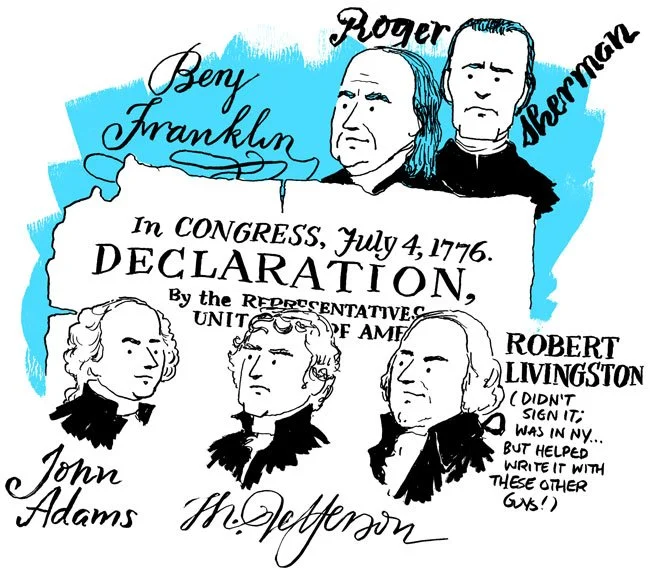 Roger
Sherman
Benj
Franklin
In CONGRESS, July 4, 1776.
DECLARATION,
By the REPRESENTATIVES
UNIT OF AME
ROBERT
LIVINGSTON
(DIDN'T
SIGN IT;
WAS IN NY...
BUT HELPED
WRITE IT WITH
THESE OTHER
GUYS!)
John
Adams
Th. Jefferson